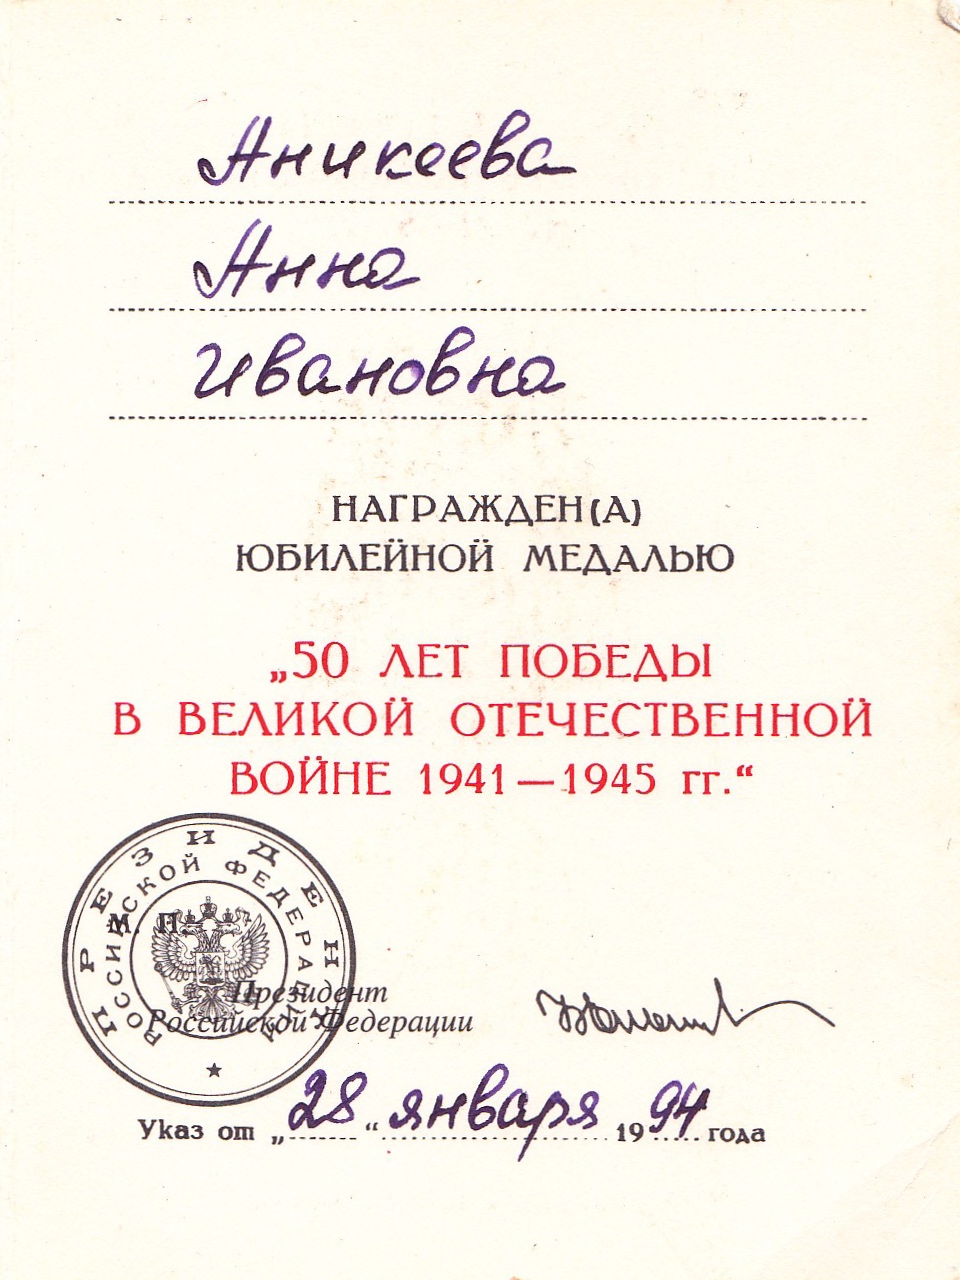 Аникеева
Анна
Ивановна
НАГРАЖДЕН(А)
ЮБИЛЕЙНОЙ МЕДАЛЬЮ
„50 ЛЕТ ПОБЕДЫ
В ВЕЛИКОЙ ОТЕЧЕСТВЕННОЙ
ВОЙНЕ 1941—1945 гг.“
ПРЕЗИДЕНТ
РОССИЙСКОЙ ФЕДЕРАЦИИ
М. П.
Президент
Российской Федерации
Указ от „28“ января 1994 года